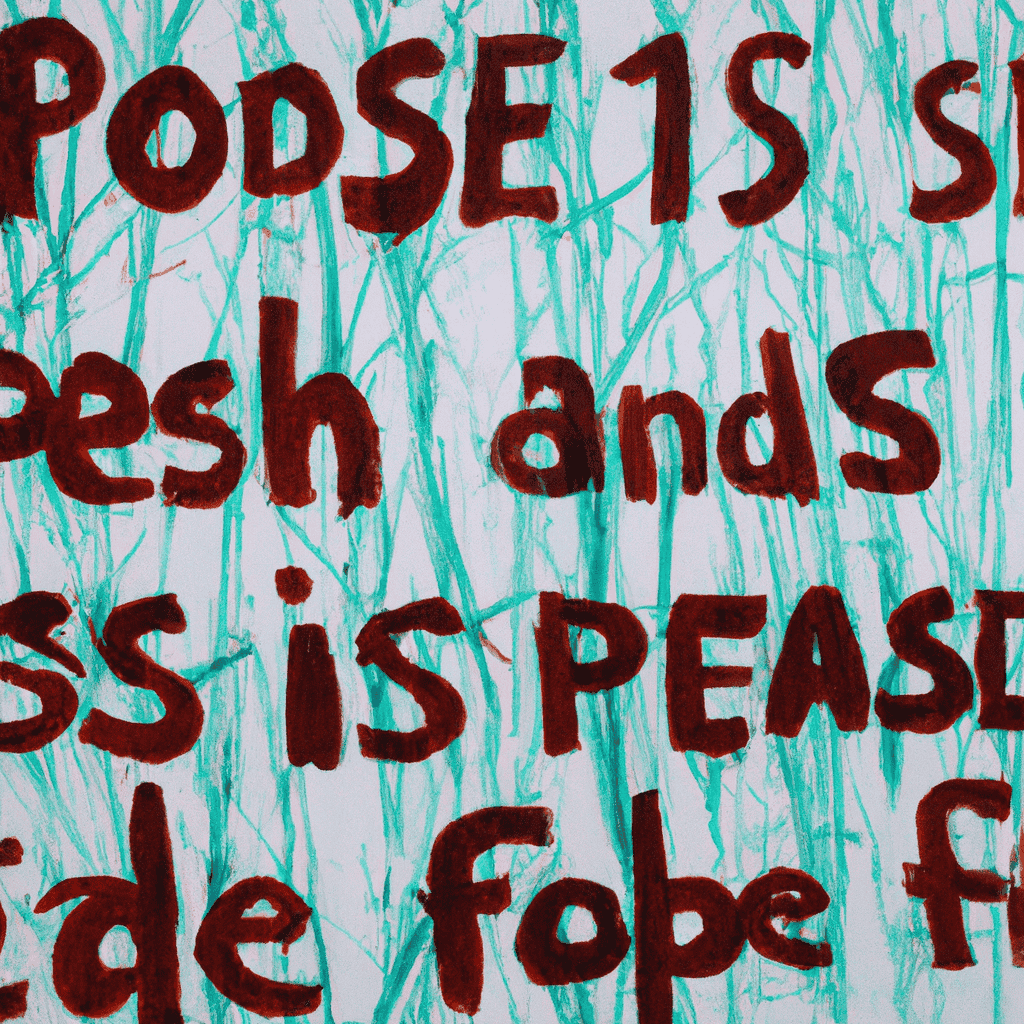 PODSE 1S SP
pesh andS
SS iS PEASE
ade fobe fo